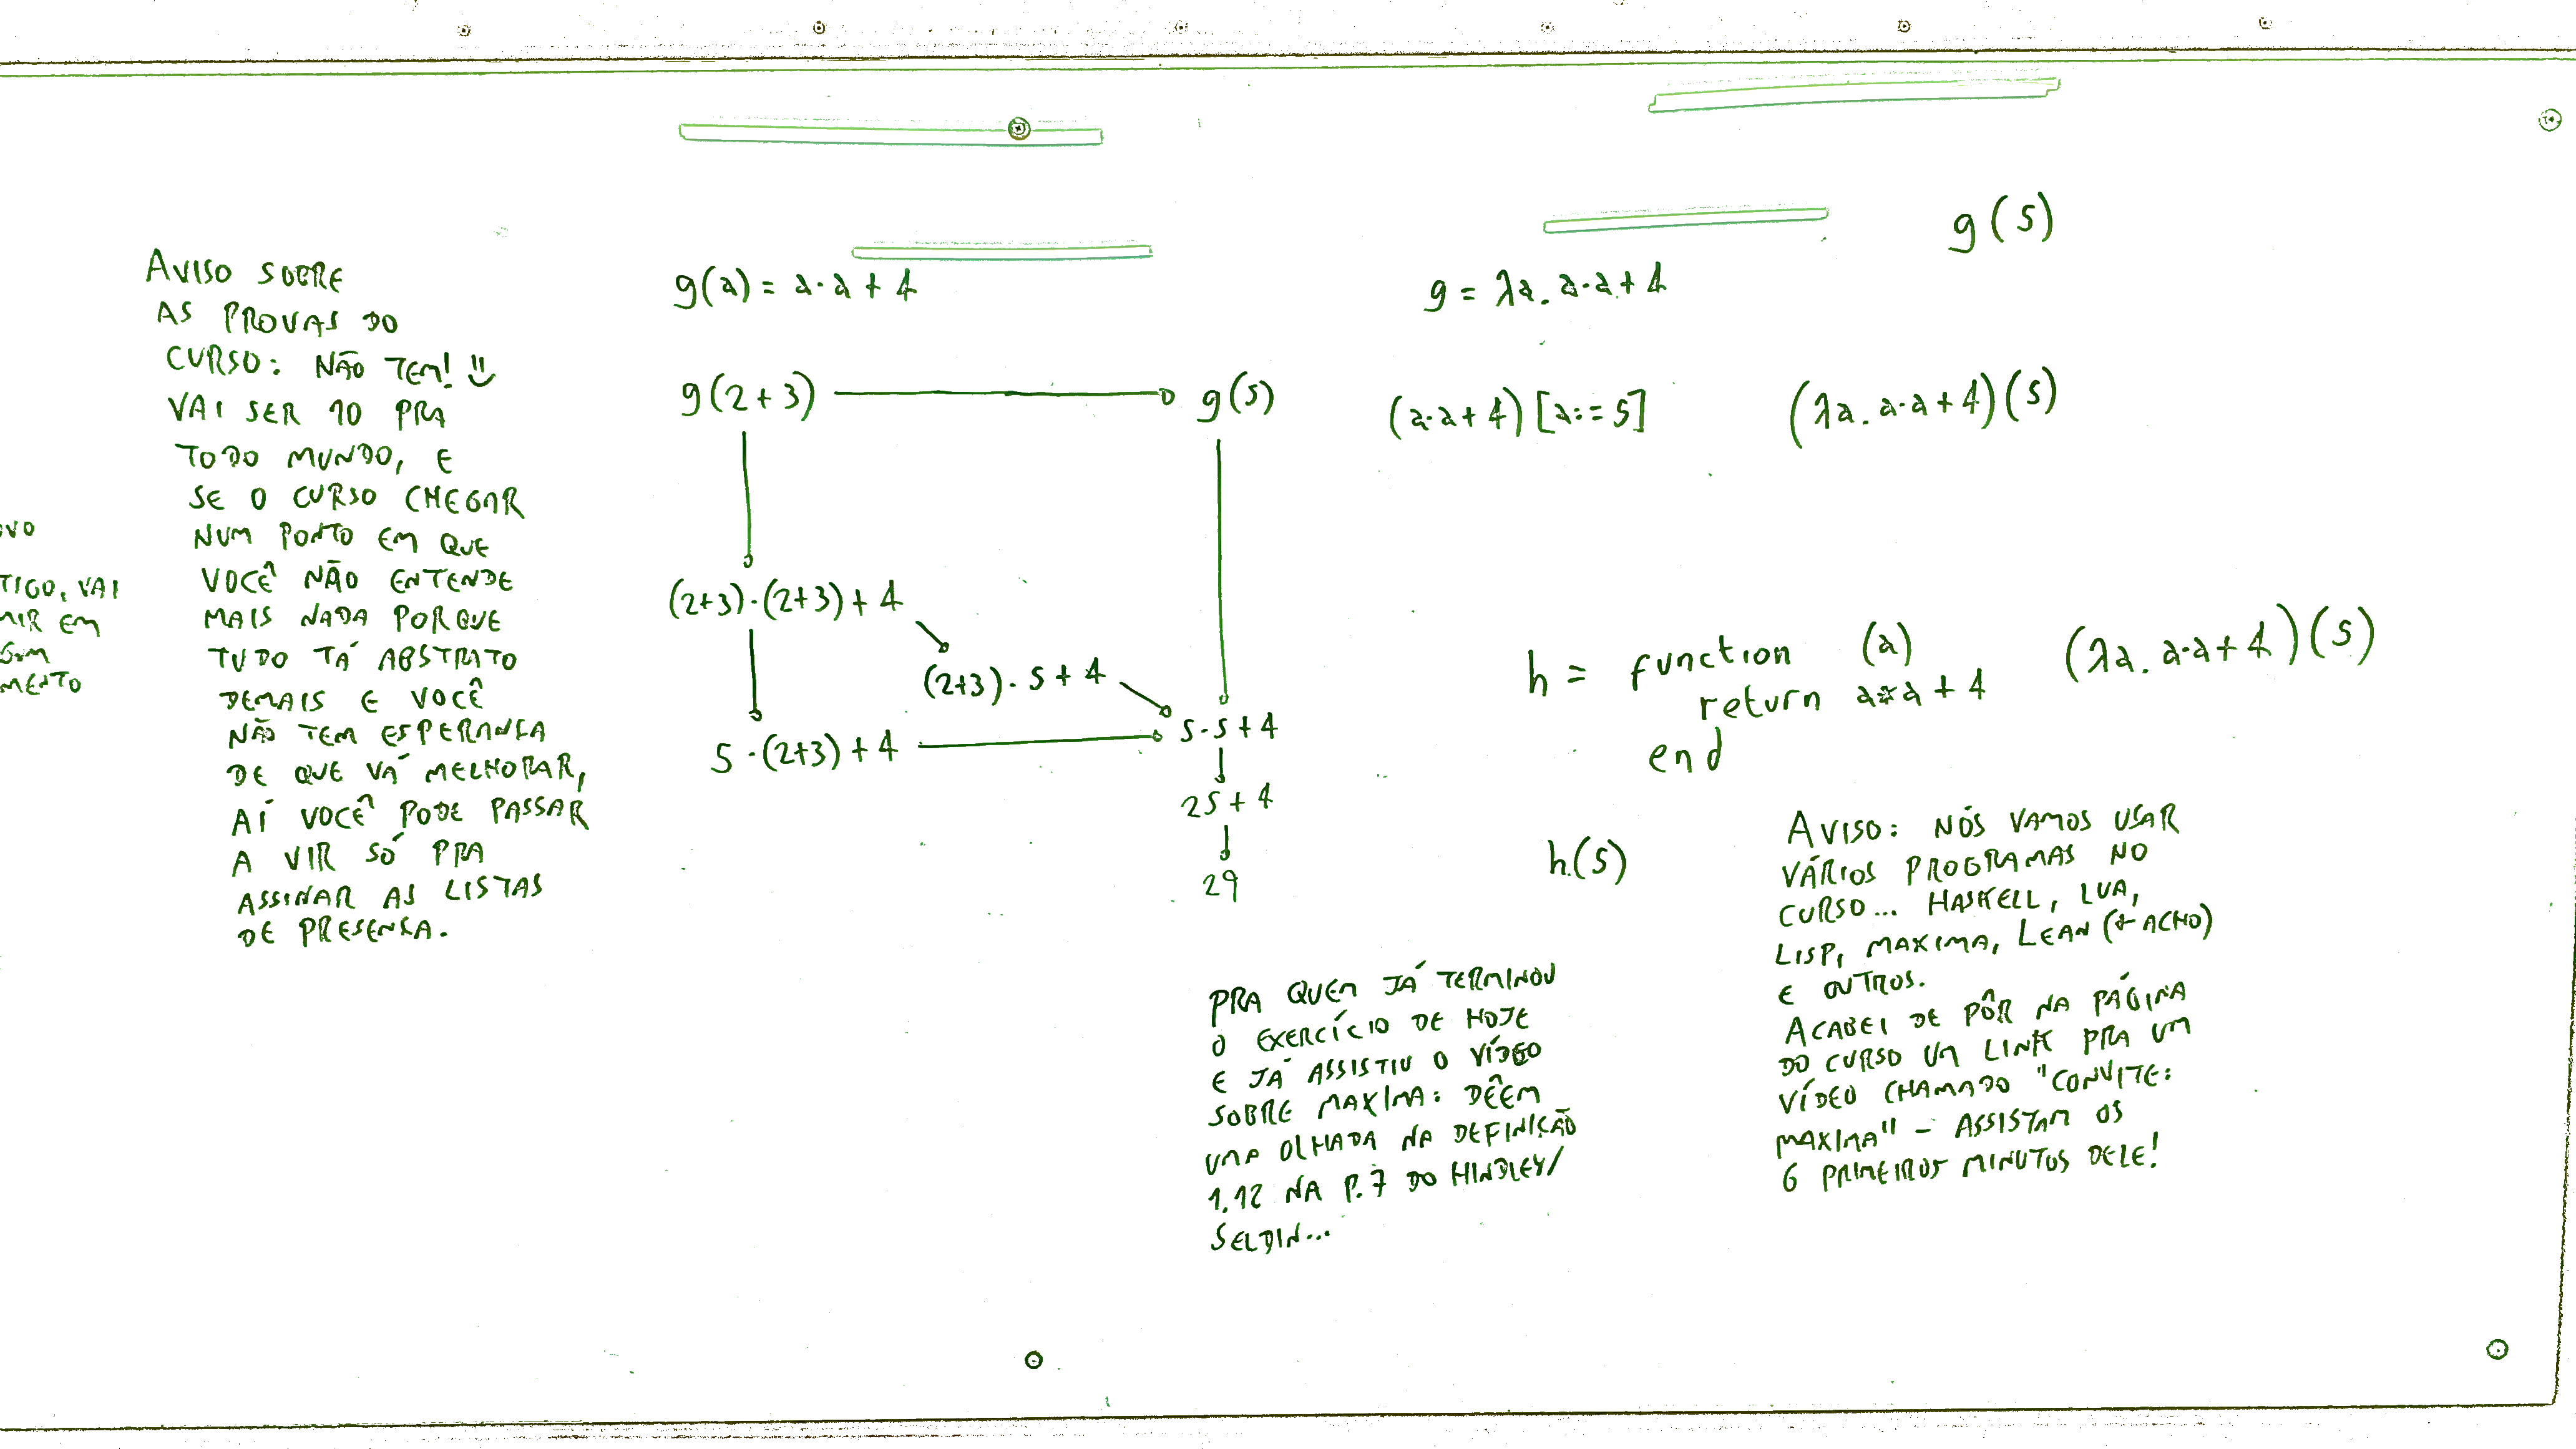 OVO
TIGO, VAI
MIR EM
MENTO
AVISO SOBRE
AS PROVAS DO
CURSO: NÃO TEM! :)
VAI SER 10 PRA
TODO MUNDO, E
SE O CURSO CHEGAR
NUM PONTO EM QUE
VOCÊ NÃO ENTENDE
MAIS NADA PORQUE
TUDO TÁ ABSTRATO
DEMAIS E VOCÊ
NÃO TEM ESPERANÇA
DE QUE VÁ MELHORAR,
AÍ VOCÊ PODE PASSAR
A VIR SÓ PRA
ASSINAR AS LISTAS
DE PRESENÇA.
g(a) = a·a + 4
g(2+3)
g(5)
(2+3)·(2+3)+4
(2+3)·5+4
5·(2+3)+4
5·5+4
25+4
29
g(5)
g = λa. a·a+4
(a·a+4)[a:=5]
(λa. a·a+4)(5)
h = function (a)
return a*a + 4
end
(λa. a·a+4)(5)
h(5)
PRA QUEM JÁ TERMINOU
O EXERCÍCIO DE HOJE
E JÁ ASSISTIU O VÍDEO
SOBRE MAXIMA: DÊEM
UMA OLHADA NA DEFINIÇÃO
1.12 NA P.7 DO HINDLEY/
SELDIN...
AVISO: NÓS VAMOS USAR
VÁRIOS PROGRAMAS NO
CURSO... HASKELL, LUA,
LISP, MAXIMA, LEAN (← ACHO)
E OUTROS.
ACABEI DE PÔR NA PÁGINA
DO CURSO UM LINK PRA UM
VÍDEO CHAMADO "CONVITE:
MAXIMA" – ASSISTAM OS
6 PRIMEIROS MINUTOS DELE!